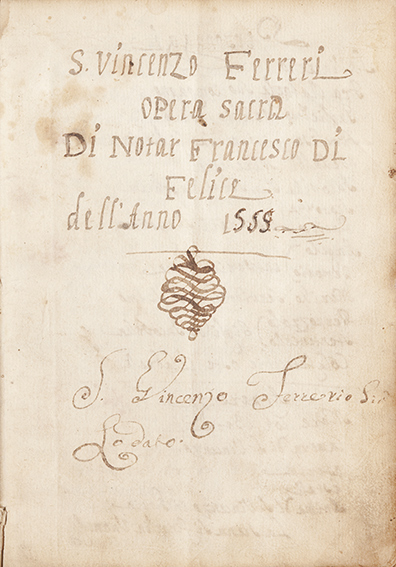 S. Vincenzo Ferreri
opera sacra
Di Notar Francesco Di
Felice
dell'Anno 1558
S. Vincenzo Ferrerio
Lodato.